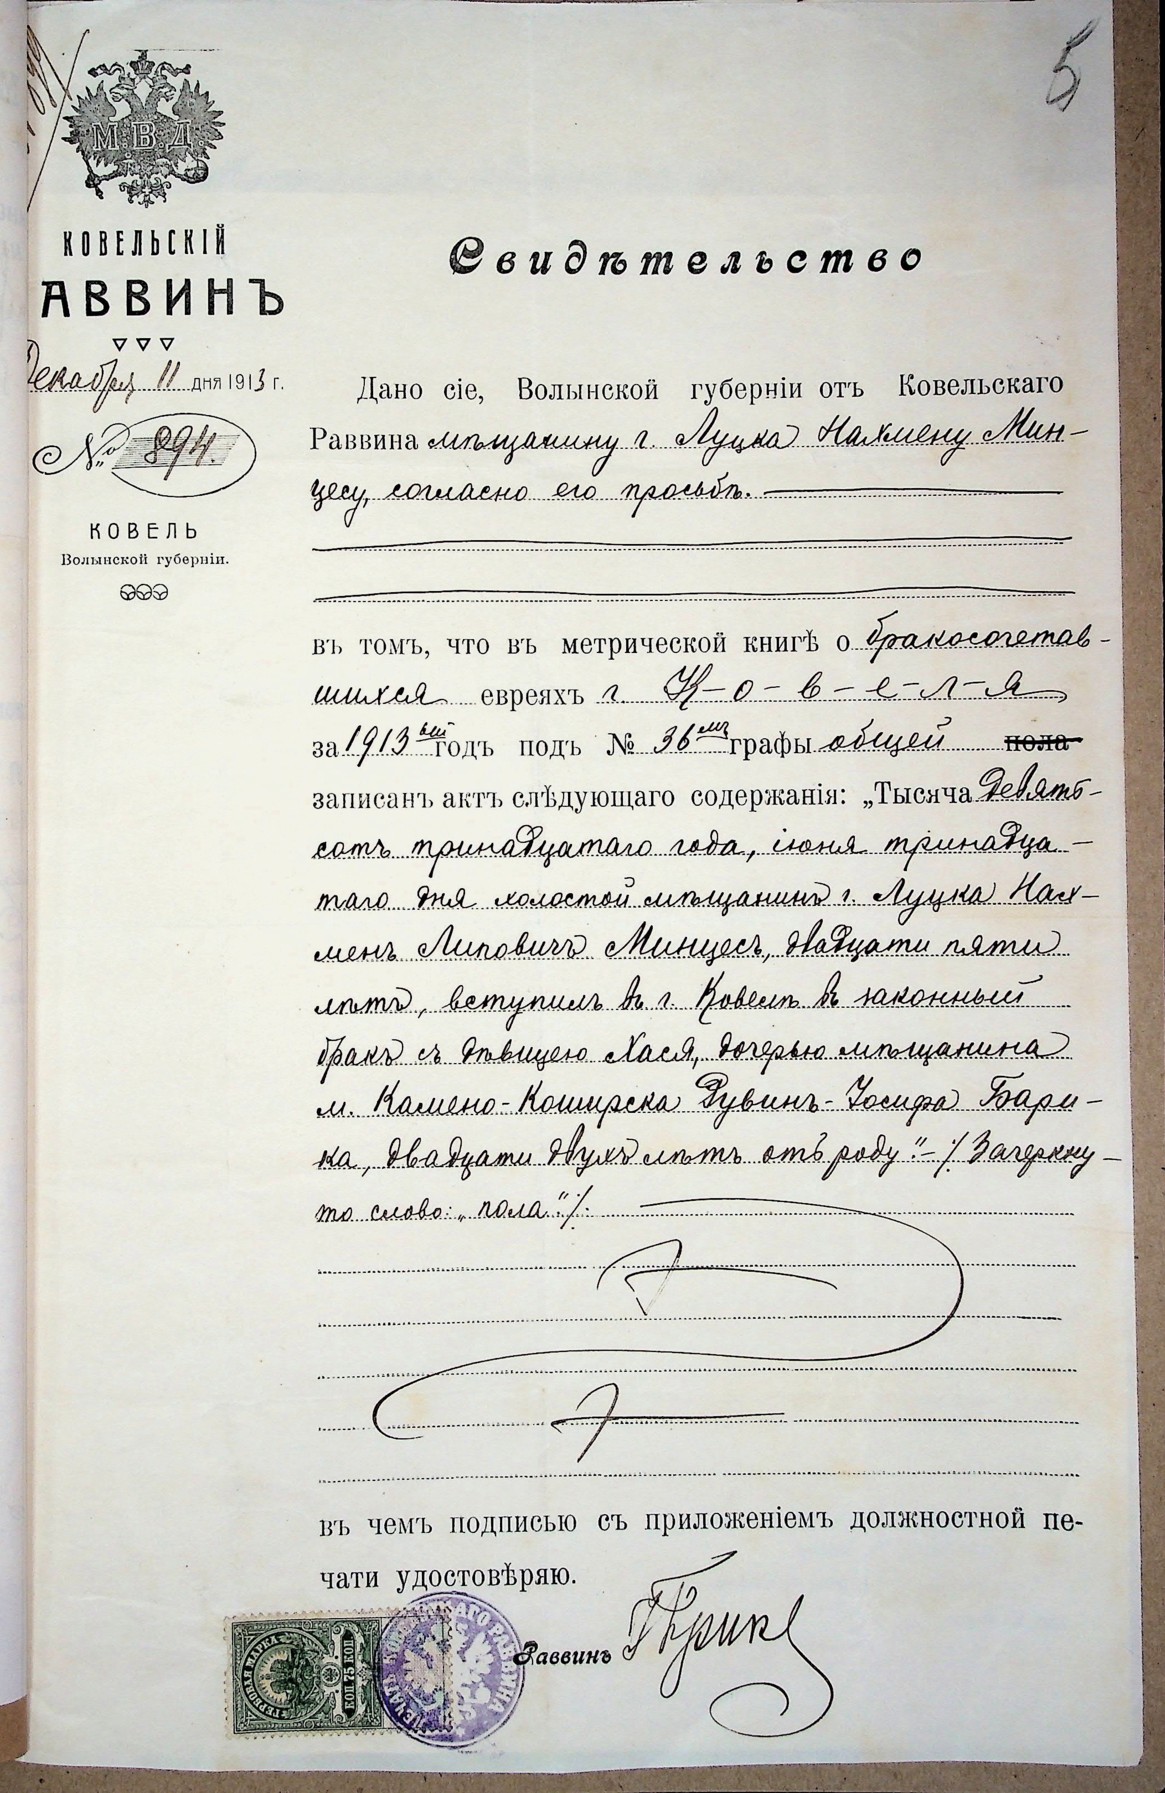 5
М.В.Д.
КОВЕЛЬСКІЙ
АВВИНЪ
Декабря 11 дня 1913 г.
№ 894.
КОВЕЛЬ
Волынской губерніи.
Свидѣтельство
Дано сіе, Волынской губерніи отъ Ковельскаго
Раввина мѣщанину г. Луцка Нахмену Мин-
цесу, согласно его просьбѣ.
въ томъ, что въ метрической книгѣ о бракосочетав-
шихся евреяхъ г. К-о-в-е-л-я
за 1913ый годъ подъ № 36мъ графы общей пола
записанъ актъ слѣдующаго содержанія: „Тысяча девять-
сотъ тринадцатаго года, іюня тринадца-
таго дня холостой мѣщанинъ г. Луцка Нах-
менъ Липовичъ Минцесъ, двадцати пяти
лѣтъ, вступилъ въ г. Ковелѣ въ законный
бракъ съ дѣвицею Хася, дочерью мѣщанина
м. Камено-Коширска Рувинъ-Іосифа Бари-
ка, двадцати двухъ лѣтъ отъ роду".-/. Зачеркну-
то слово: „пола"./.
въ чемъ подписью съ приложеніемъ должностной пе-
чати удостовѣряю.
Раввинъ
ГЕРБОВАЯ МАРКА
75 КОП.
ПЕЧАТЬ КОВЕЛЬСКАГО РАВВИНА